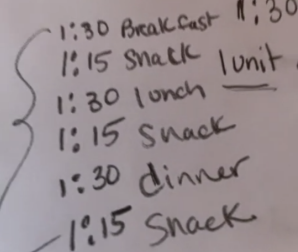 1:30 Breakfast 1:30
1:15 Snack 1unit
1:30 lunch
1:15 Snack
1:30 dinner
1:15 Snack